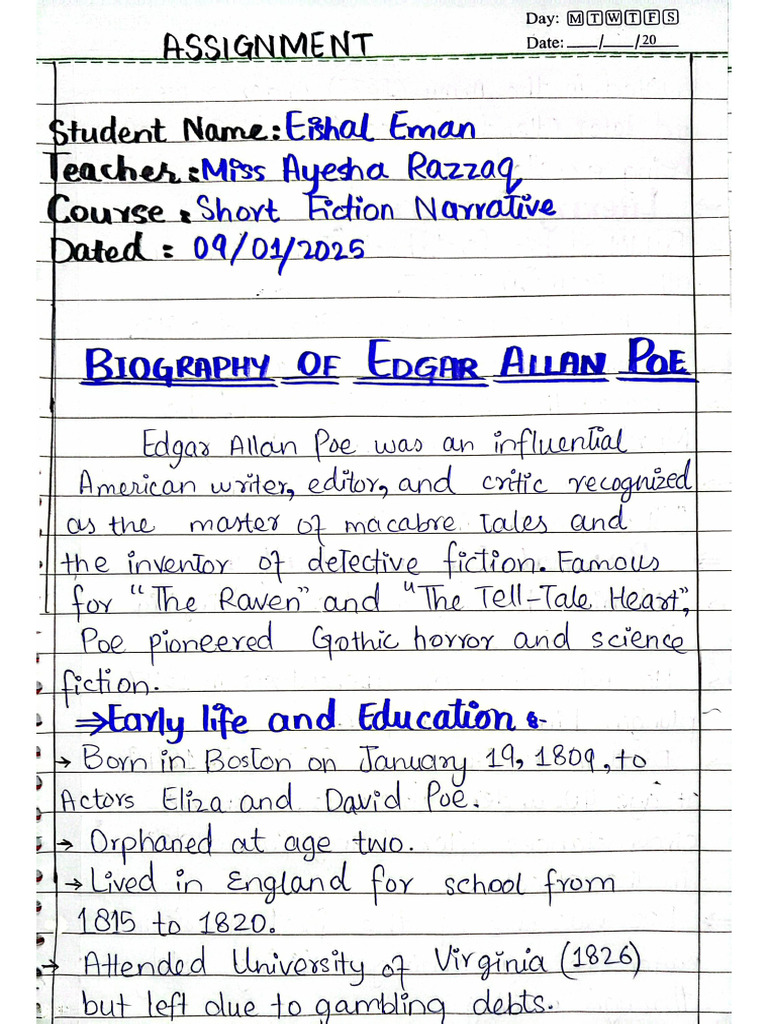 Day: M T W T F S
ASSIGNMENT
Date: ___/___/20___
Student Name: Eishal Eman
Teacher: Miss Ayesha Razzaq
Course: Short Fiction Narrative
Dated: 09/01/2025
BIOGRAPHY OF EDGAR ALLAN POE
Edgar Allan Poe was an influential
American writer, editor, and critic recognized
as the master of macabre tales and
the inventor of detective fiction. Famous
for "The Raven" and "The Tell-Tale Heart",
Poe pioneered Gothic horror and science
fiction.
⇒Early life and Education :-
→ Born in Boston on January 19, 1809, to
Actors Eliza and David Poe.
→ Orphaned at age two.
→ Lived in England for school from
1815 to 1820.
→ Attended University of Virginia (1826)
but left due to gambling debts.